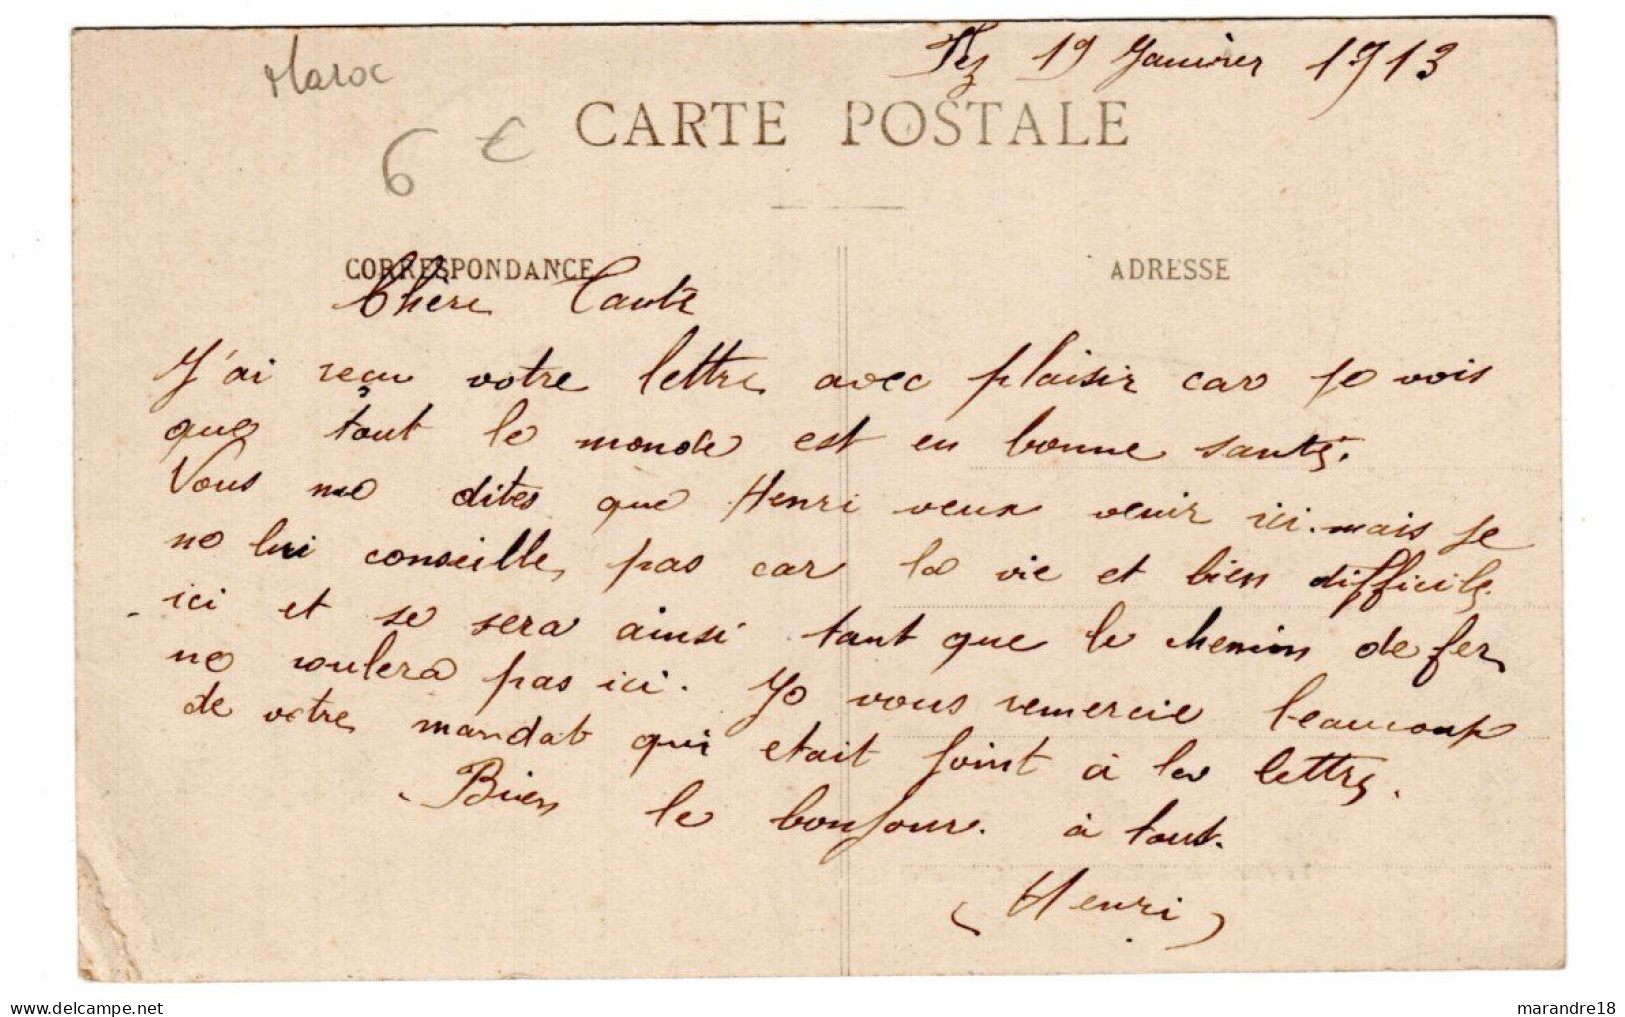 Maroc
Fez 19 Janvier 1913
6 €
CARTE POSTALE
CORRESPONDANCE
ADRESSE
Chère Tante
J'ai reçu votre lettre avec plaisir car je vois
que tout le monde est en bonne santé.
Vous me dites que Henri veux venir ici. mais je
ne lui conseille pas car la vie et bien difficile
ici et se sera ainsi tant que le chemin de fer
ne roulera pas ici. Je vous remercie beaucoup
de votre mandat qui etait joint à la lettre.
Bien le bonjour. à tout.
(Henri)
marandre18